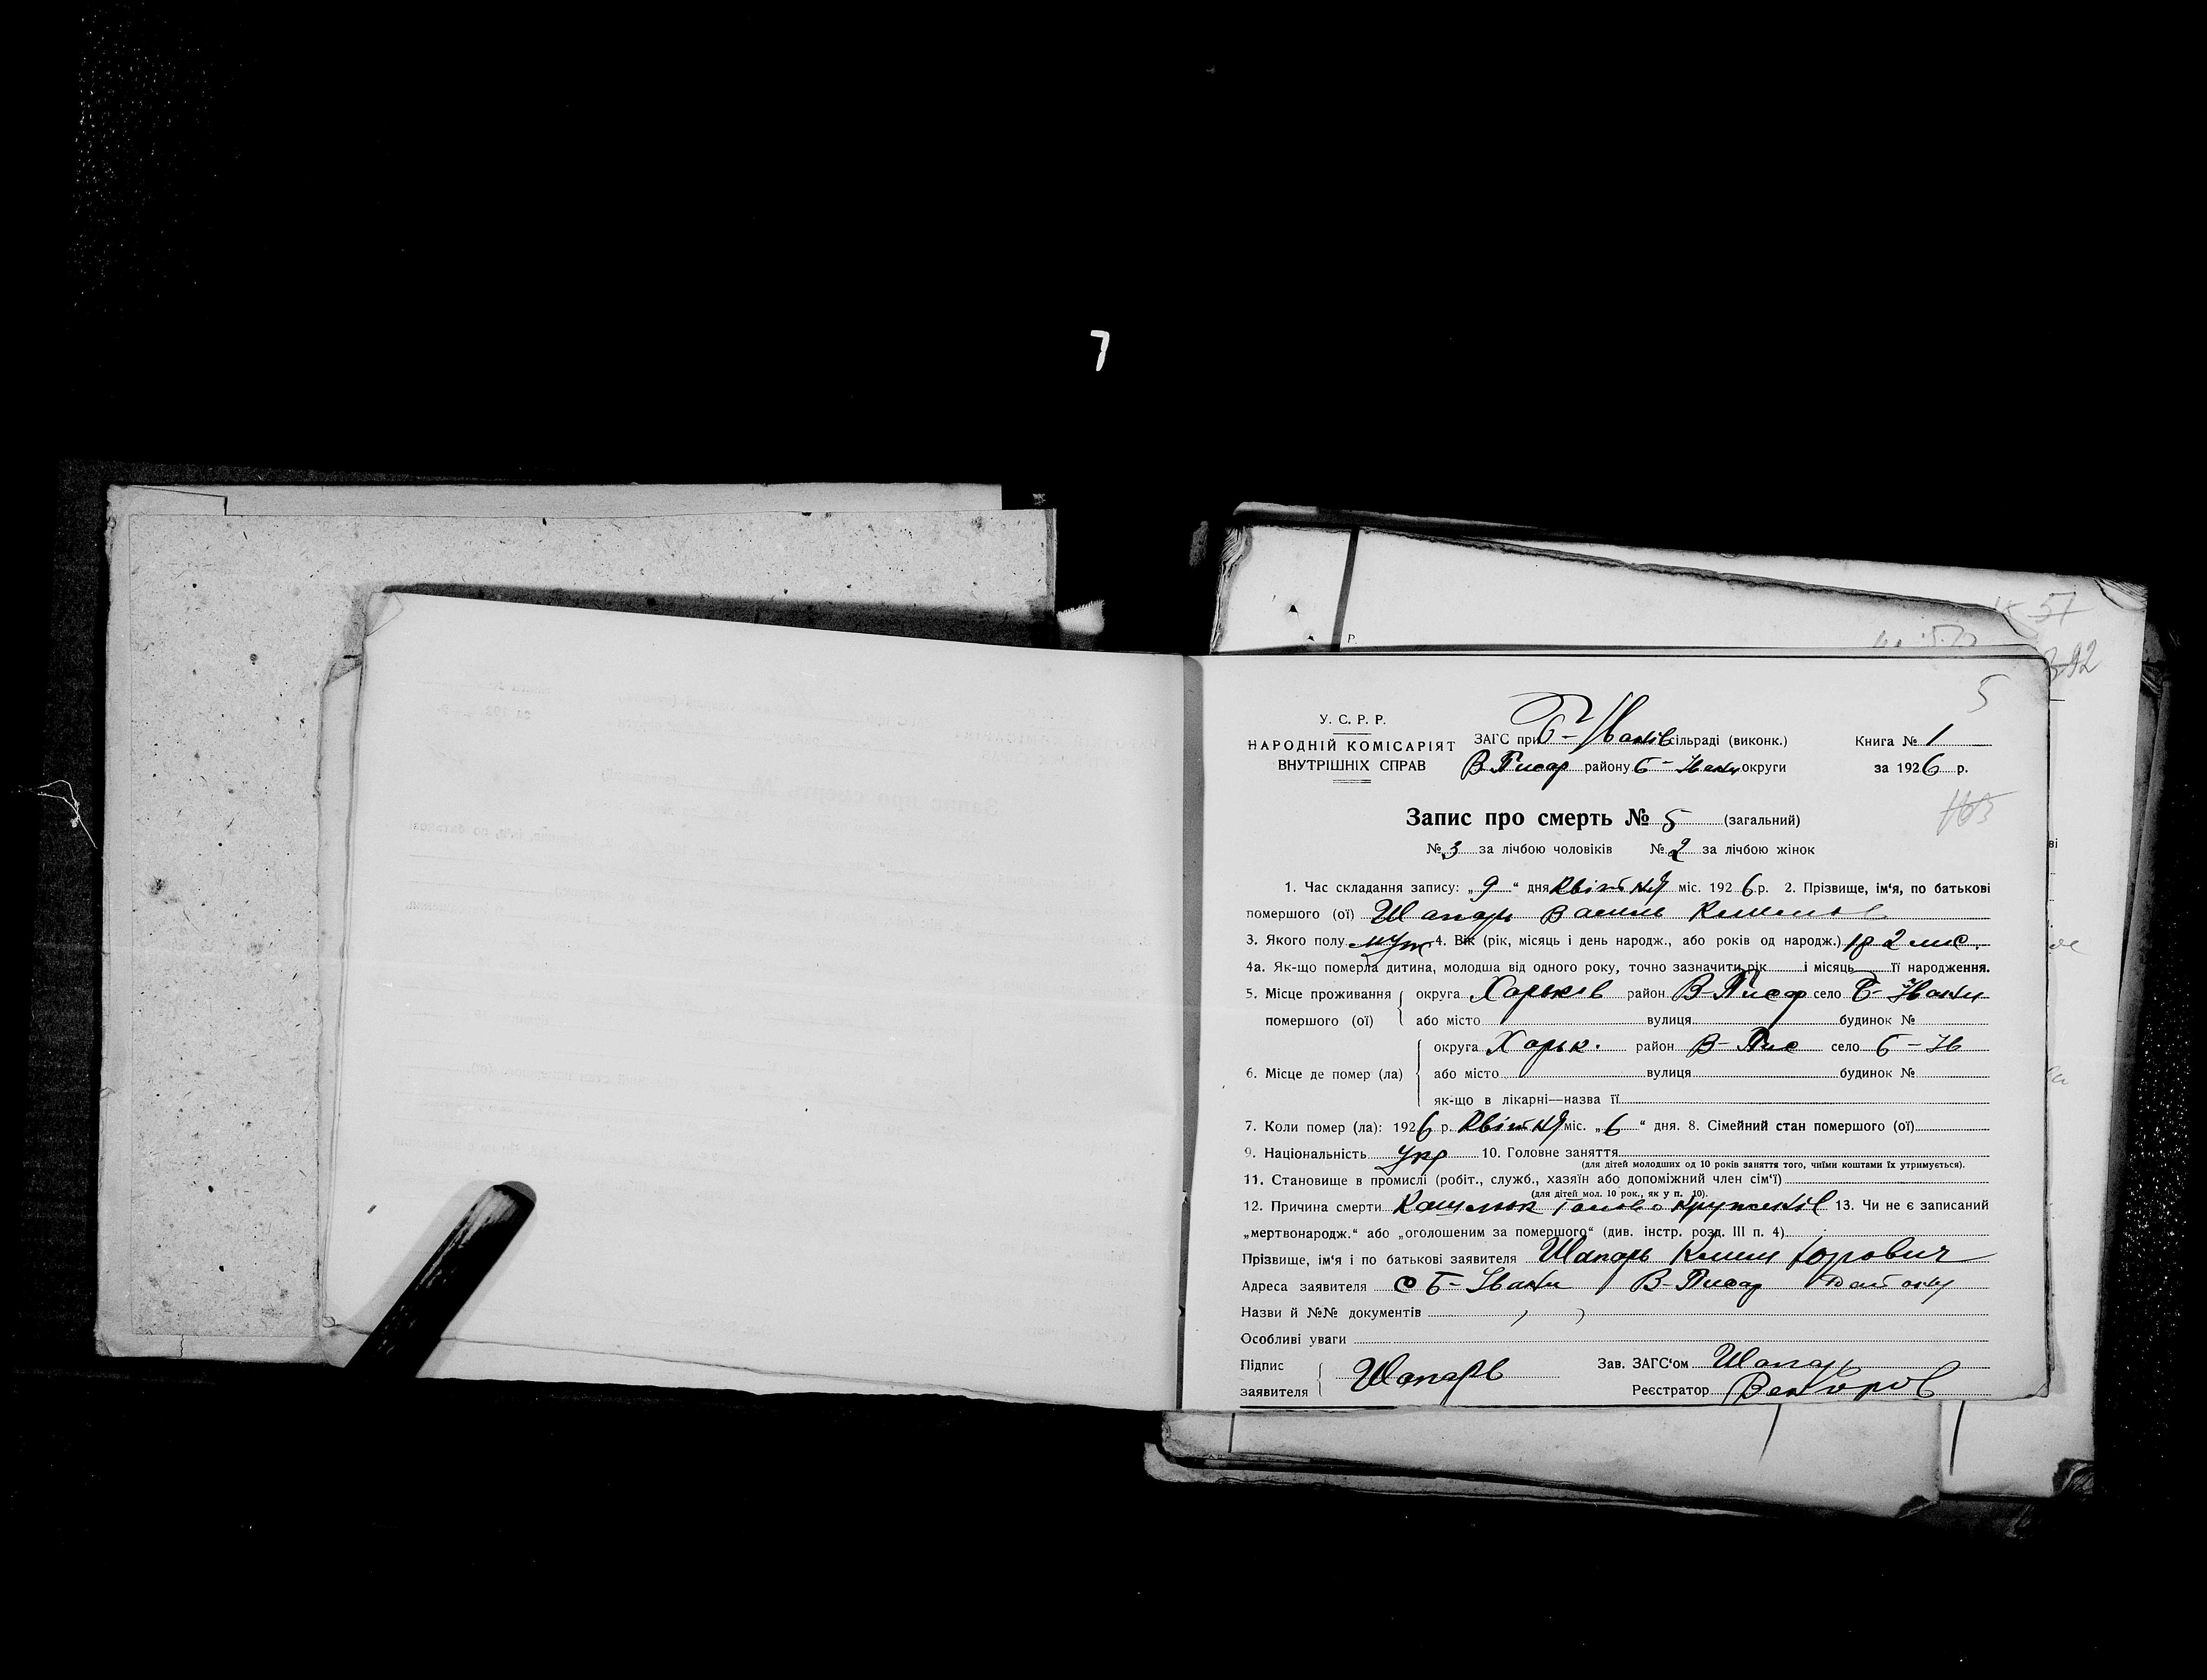 7
57
392
5
У. С. Р. Р.
НАРОДНІЙ КОМІСАРІЯТ
ВНУТРІШНІХ СПРАВ
ЗАГС при Б-Іванів сільраді (виконк.)
В Писар району Б-Івани округи
Книга № 1
за 1926 р.
Запис про смерть № 5 (загальний)
163
№ 3 за лічбою чоловіків № 2 за лічбою жінок
1. Час складання запису: „9“ дня Квітня міс. 1926 р. 2. Прізвище, ім‘я, по батькові
помершого (ої) Шапарь Василь Климов
3. Якого полу муж 4. Вік (рік, місяць і день народж., або років од народж.) 1р 2 мис.
4а. Як-що померла дитина, молодша від одного року, точно зазначити рік і місяць її народження.
5. Місце проживання
помершого (ої)
округа Харьков район В-Писар село Б-Івани
або місто вулиця будинок №
6. Місце де помер (ла)
округа Харьк. район В-Пис село Б-Ів
або місто вулиця будинок №
як-що в лікарні—назва її
7. Коли помер (ла): 1926 р. Квітня міс. „6“ дня. 8. Сімейний стан помершого (ої)
9. Національність Укр 10. Головне заняття
(для дітей молодших од 10 років заняття того, чиїми коштами їх утримується).
11. Становище в промислі (робіт., служб., хазяїн або допоміжний член сім‘ї)
(для дітей мол. 10 рок., як у п. 10).
12. Причина смерти Кашлюк 13. Чи не є записаний
„мертвонародж.“ або „оголошеним за помершого“ (див. інстр. розд. III п. 4)
Прізвище, ім‘я і по батькові заявителя Шапарь Клим
Адреса заявителя с Б-Івани В-Писар
Назви й №№ документів
Особливі уваги
Підпис
заявителя
Шапарь
Зав. ЗАГС‘ом Шапарь
Реєстратор